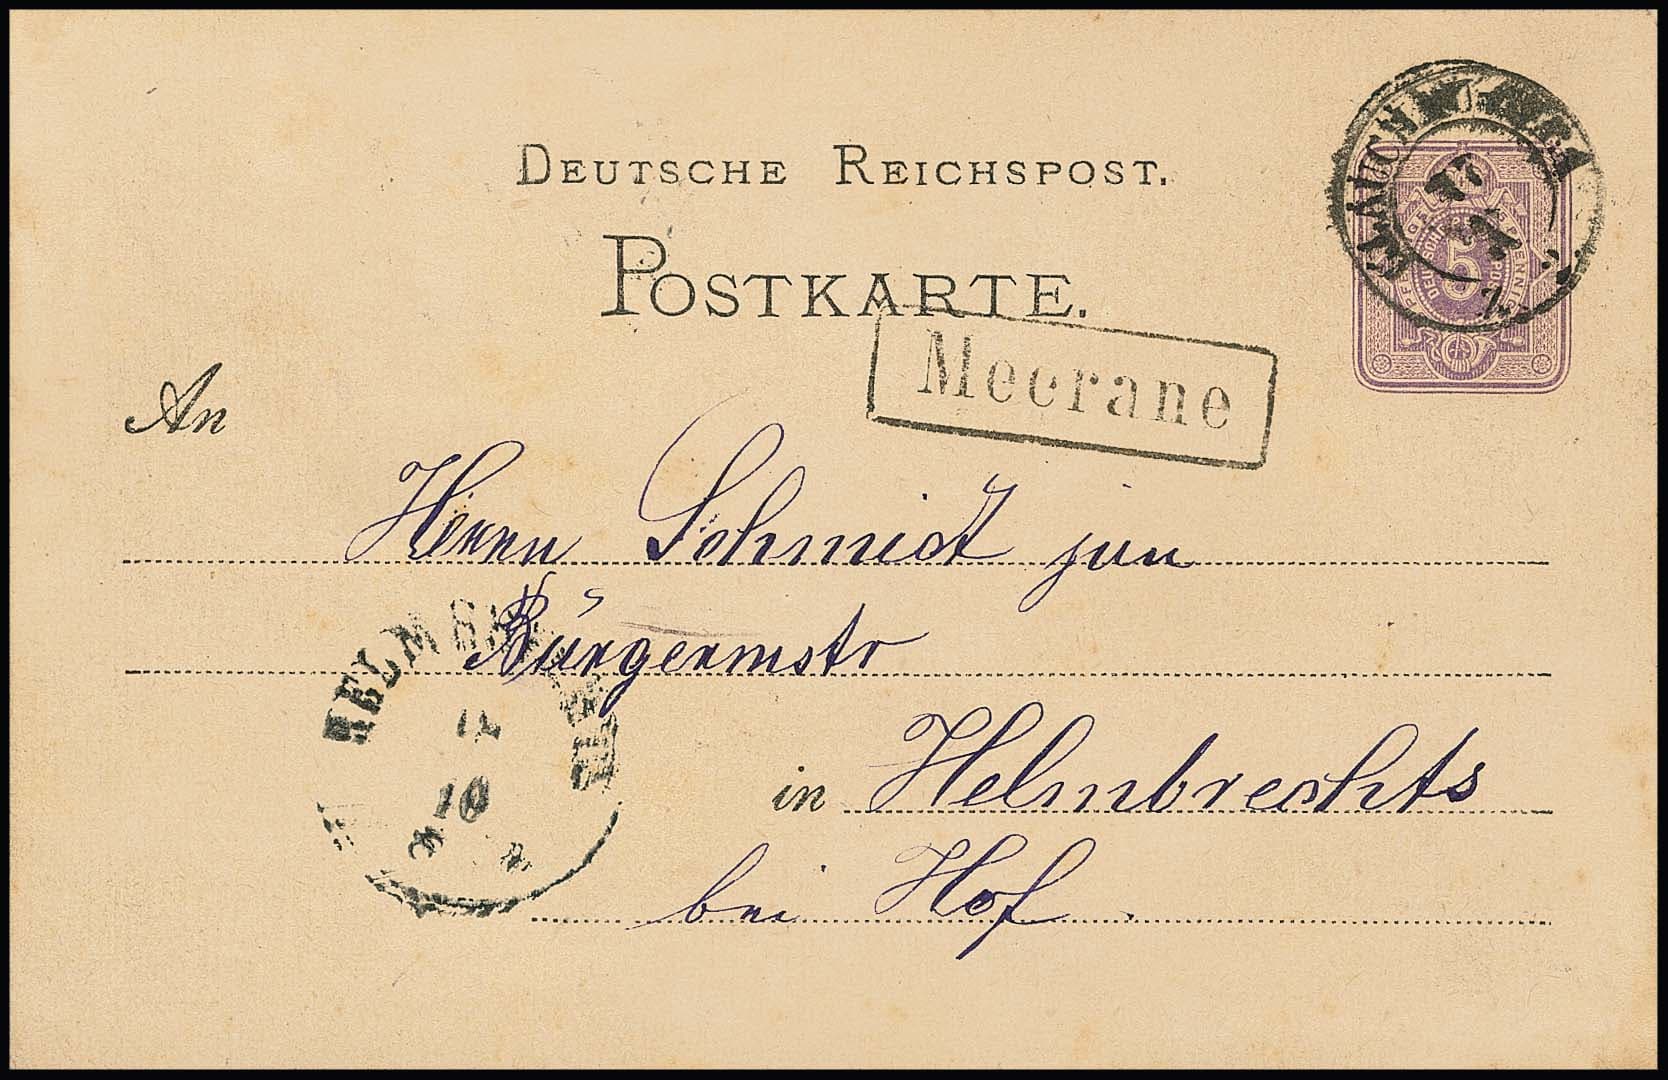 DEUTSCHE REICHSPOST.
POSTKARTE.
Meerane
An
Herrn Schmidt jun
Bürgermstr
in Helmbrechts
bei Hof
5
17
10